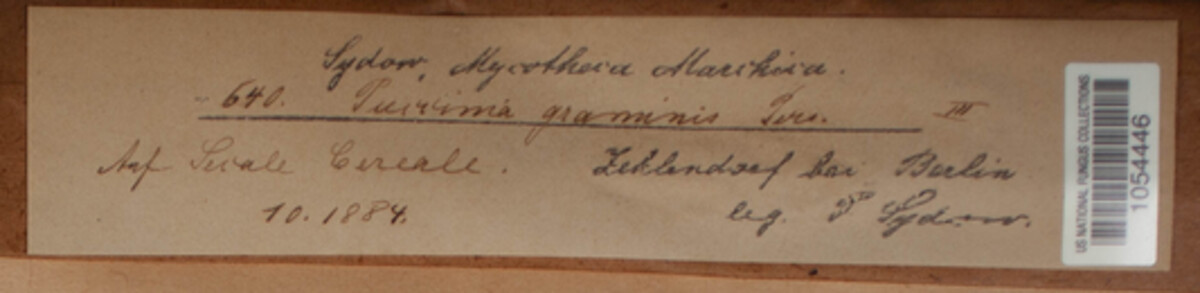 Sydow, Mycotheca Marchica.
640. Puccinia graminis Pers. III
Auf Secale Cereale. Zehlendorf bei Berlin
10. 1884. leg. P Sydow.
US NATIONAL FUNGUS COLLECTIONS
1054446